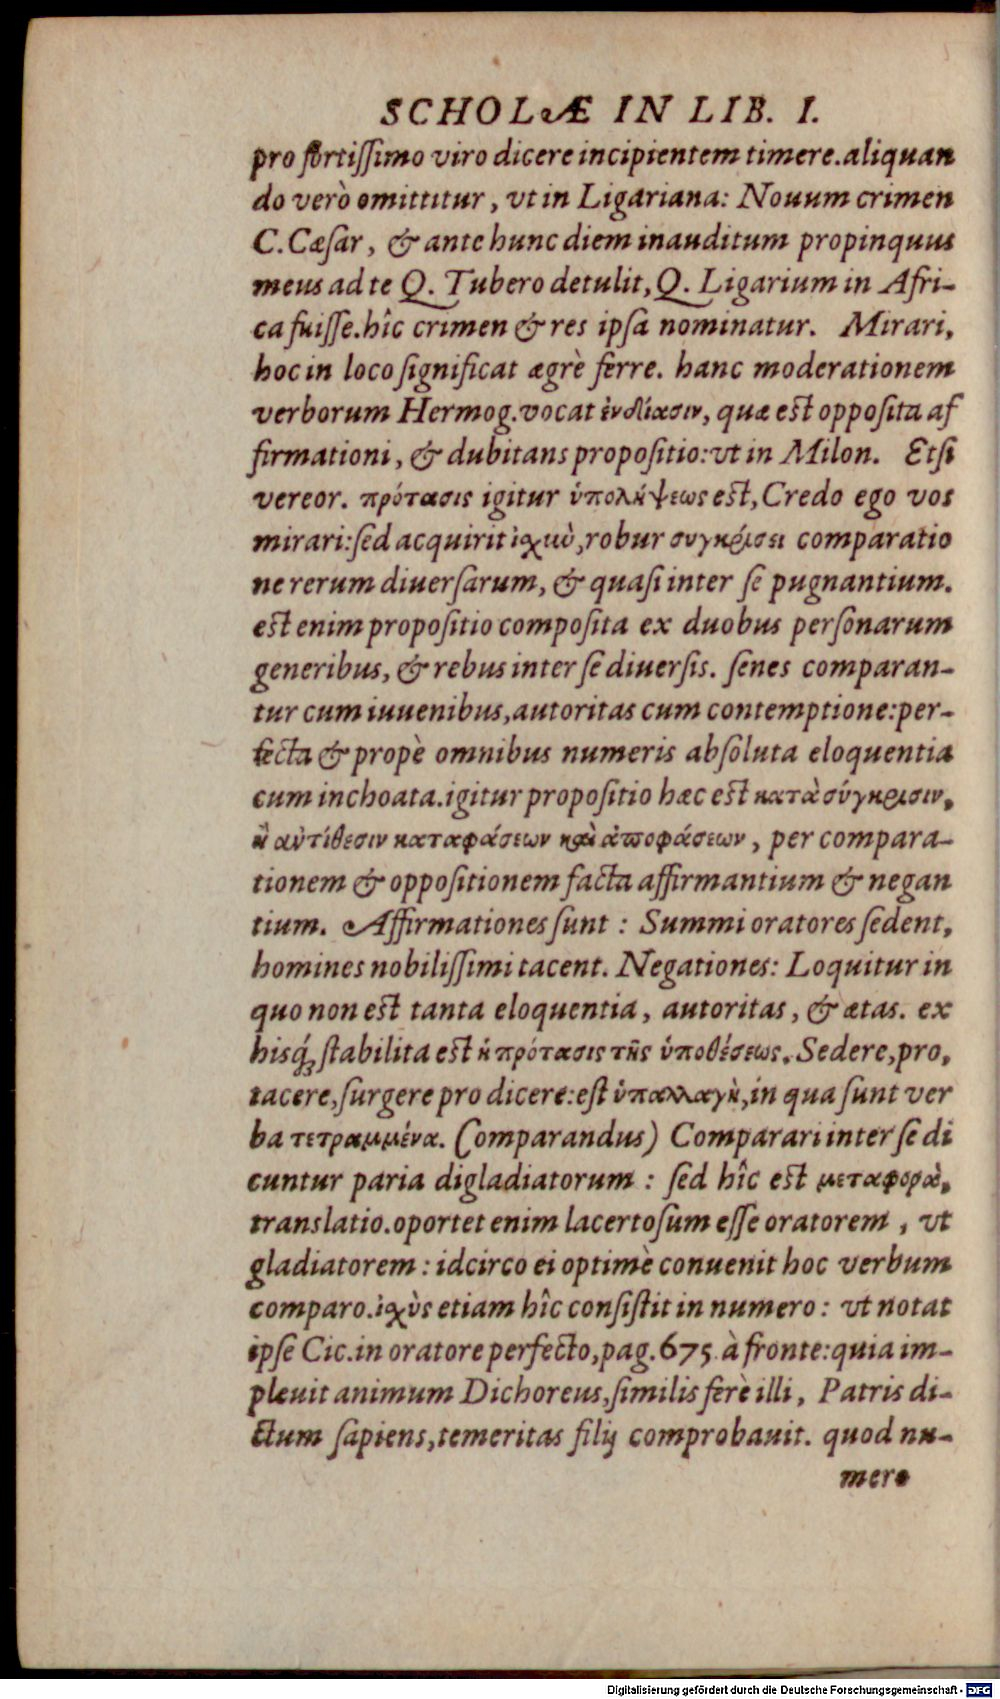 SCHOLÆ IN LIB. I.
pro fortissimo viro dicere incipientem timere. aliquan
do verò omittitur, vt in Ligariana: Nouum crimen
C. Cæsar, & ante hunc diem inauditum propinquus
meus ad te Q. Tubero detulit, Q. Ligarium in Afri-
ca fuisse. hîc crimen & res ipsa nominatur. Mirari,
hoc in loco significat ægrè ferre. hanc moderationem
verborum Hermog. vocat ἐνδίασιν, quæ est opposita af
firmationi, & dubitans propositio: vt in Milon. Etsi
vereor. πρότασις igitur ὑπολήψεως est, Credo ego vos
mirari: sed acquirit ἰχὺ, robur συγκρίσει comparatio
ne rerum diuersarum, & quasi inter se pugnantium.
est enim propositio composita ex duobus personarum
generibus, & rebus inter se diuersis. senes comparan-
tur cum iuuenibus, autoritas cum contemptione: per-
fecta & propè omnibus numeris absoluta eloquentia
cum inchoata. igitur propositio hæc est κατὰ σύγκρισιν,
ἢ ἀντίθεσιν καταφάσεων καὶ ἀποφάσεων, per compara-
tionem & oppositionem facta affirmantium & negan
tium. Affirmationes sunt : Summi oratores sedent,
homines nobilissimi tacent. Negationes: Loquitur in
quo non est tanta eloquentia, autoritas, & ætas. ex
hisq́; stabilita est ἡ πρότασις τῆς ὑποθέσεως. Sedere, pro,
tacere, surgere pro dicere: est ὑπαλλαγὴ, in qua sunt ver
ba τετραμμένα. (Comparandus) Comparari inter se di
cuntur paria digladiatorum : sed hîc est μεταφορὰ,
translatio. oportet enim lacertosum esse oratorem, vt
gladiatorem : idcirco ei optimè conuenit hoc verbum
comparo. ἰχὺς etiam hîc consistit in numero : vt notat
ipse Cic. in oratore perfecto, pag. 675 à fronte: quia im-
pleuit animum Dichoreus, similis ferè illi, Patris di-
ctum sapiens, temeritas filij comprobauit. quod nu-
mero
Digitalisierung gefördert durch die Deutsche Forschungsgemeinschaft - DFG